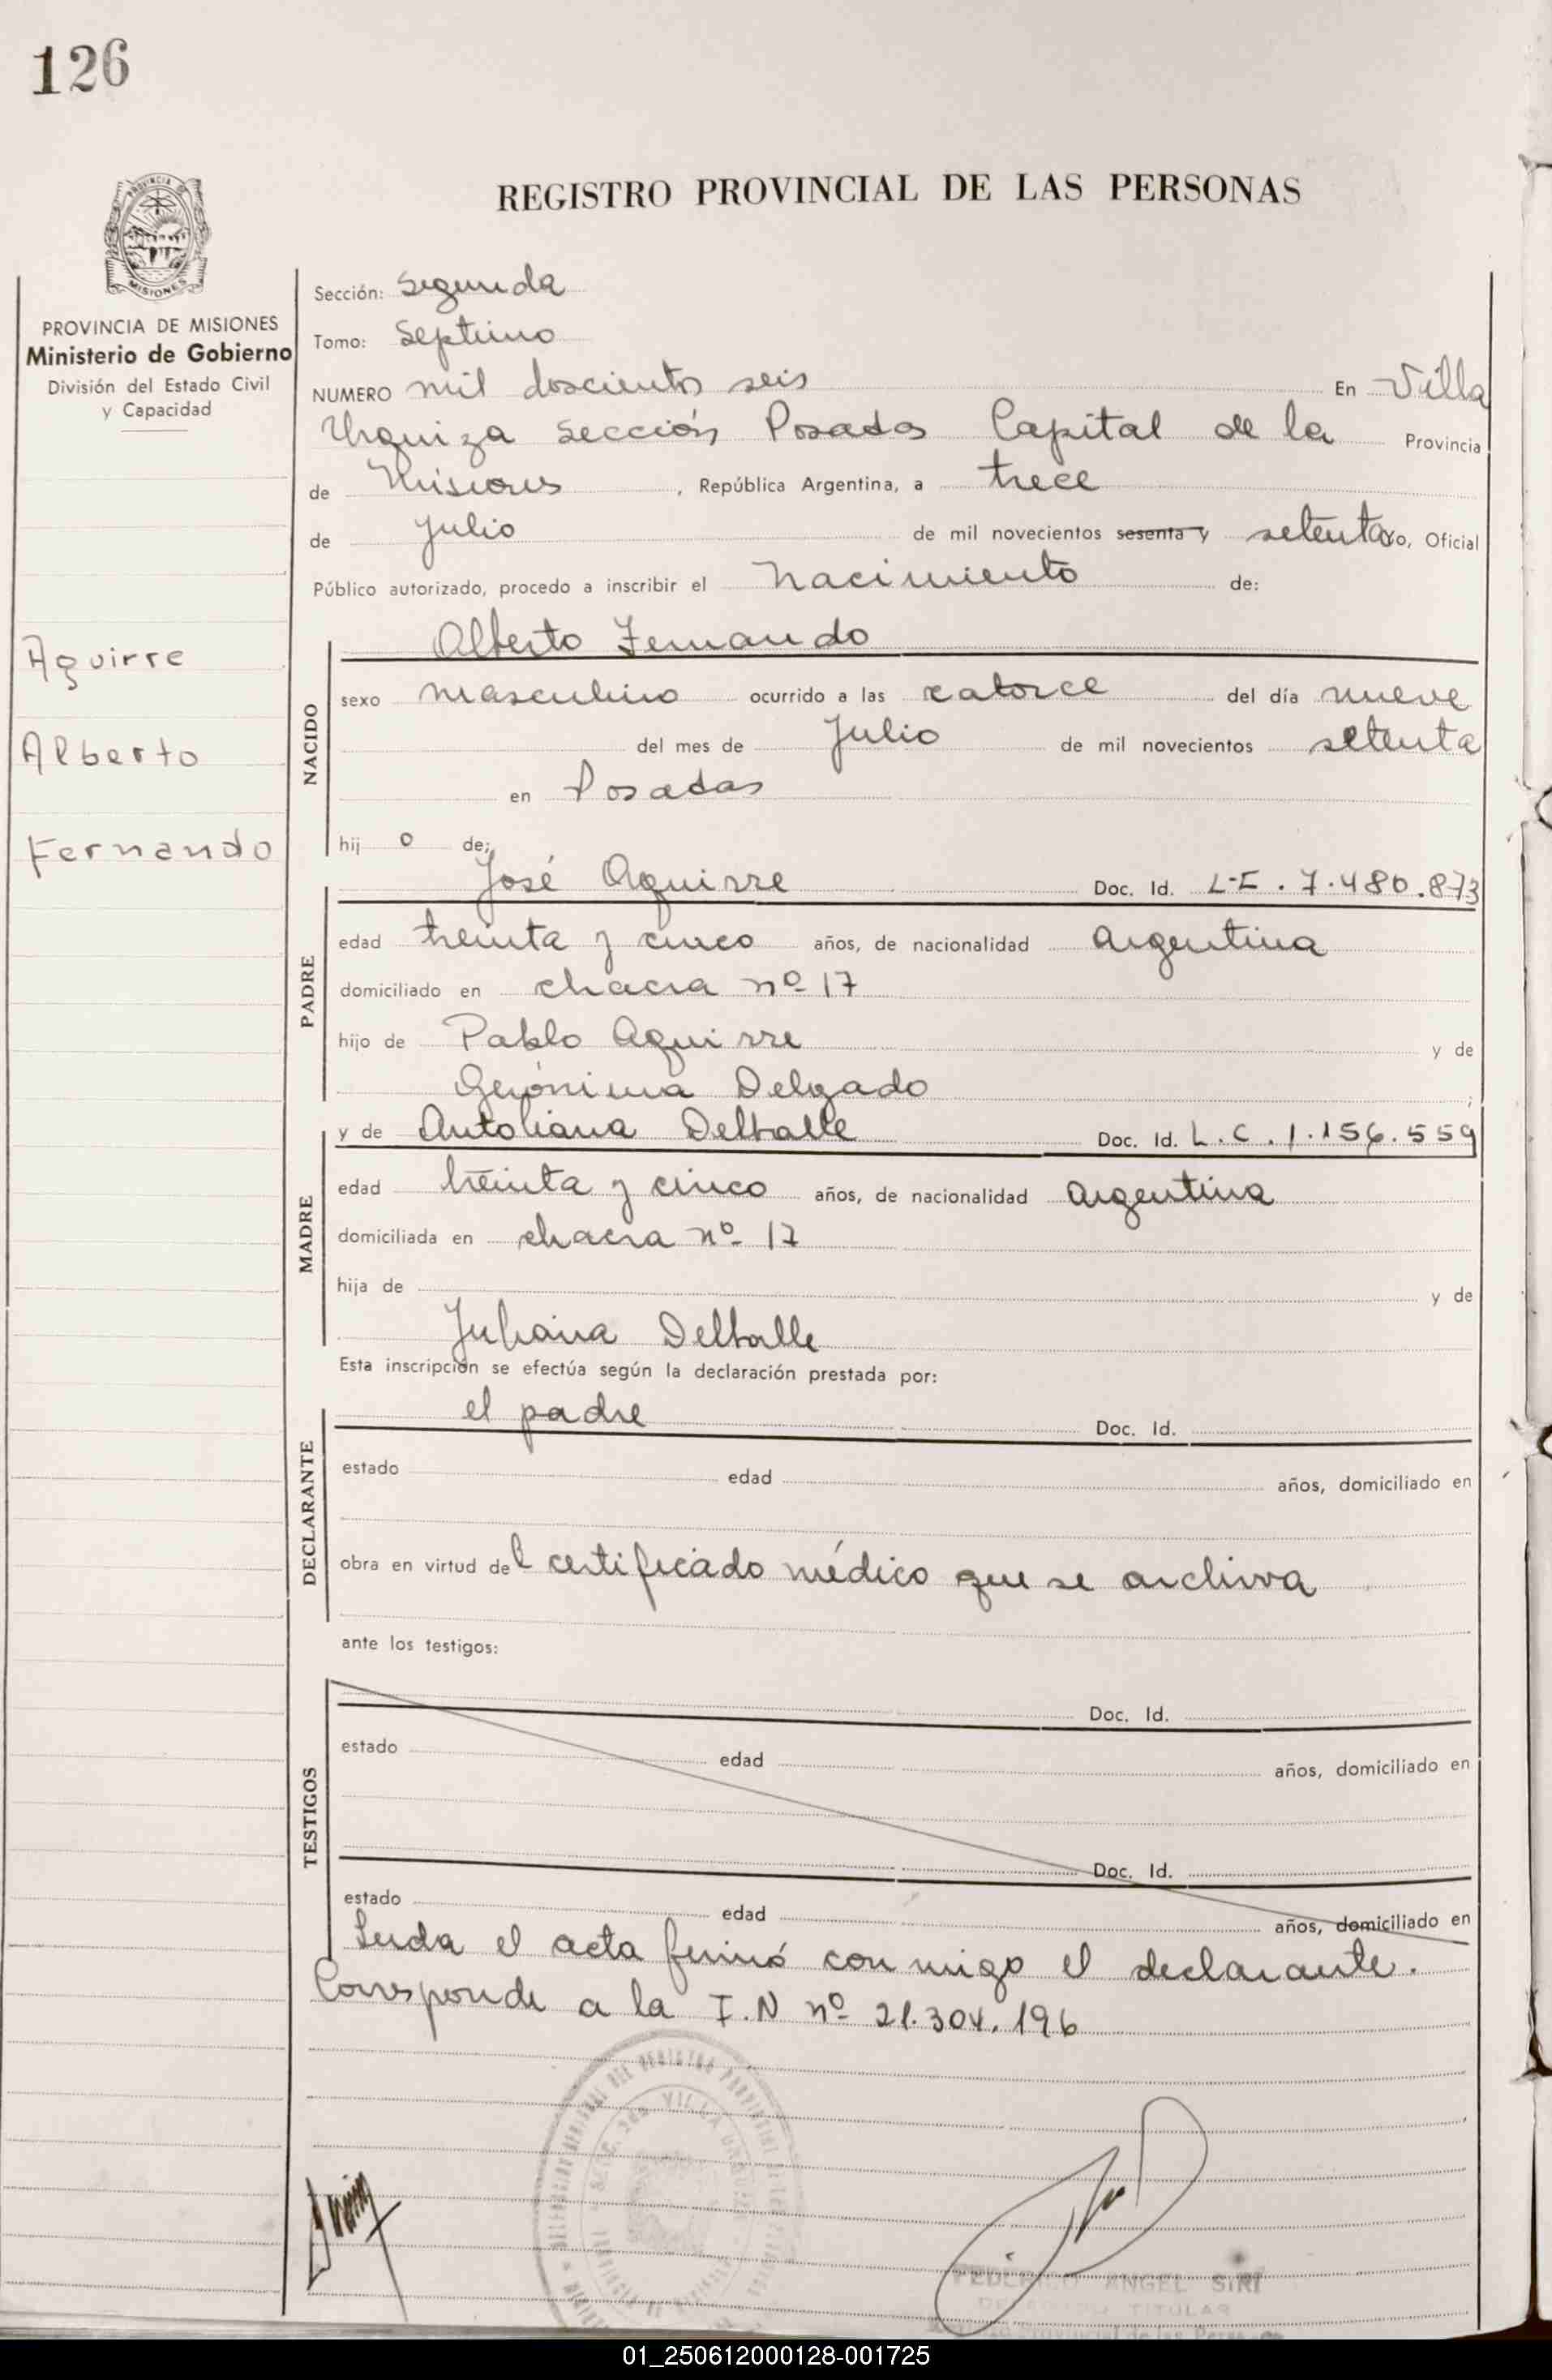 126
REGISTRO PROVINCIAL DE LAS PERSONAS
PROVINCIA DE MISIONES
Ministerio de Gobierno
División del Estado Civil
y Capacidad
Aguirre
Alberto
Fernando
Sección: Segunda
Tomo: Septimo
NUMERO mil doscientos seis En Villa
Urquiza Sección Posadas Capital de la Provincia
de Misiones, República Argentina, a trece
de Julio de mil novecientos sesenta y setenta yo, Oficial
Público autorizado, procedo a inscribir el nacimiento de:
NACIDO
Alberto Fernando
sexo masculino ocurrido a las catorce del día nueve
del mes de Julio de mil novecientos setenta
en Posadas
hij o de:
PADRE
José Aguirre Doc. Id. L-E. 7.480.873
edad treinta y cinco años, de nacionalidad Argentina
domiciliado en chacra nº 17
hijo de Pablo Aguirre y de
Gerónima Delgado;
MADRE
y de Antoliana Delvalle Doc. Id. L.C. 1.156.559
edad treinta y cinco años, de nacionalidad Argentina
domiciliada en chacra nº 17
hija de y de
Juliana Delvalle
Esta inscripción se efectúa según la declaración prestada por:
DECLARANTE
el padre Doc. Id.
estado edad años, domiciliado en
obra en virtud del certificado médico que se archiva
ante los testigos:
TESTIGOS
Doc. Id.
estado edad años, domiciliado en
Doc. Id.
estado edad años, domiciliado en
Leida el acta firmó conmigo el declarante.
Corresponde a la I.N nº 21.304.196
FEDERICO ANGEL SIRI
TITULAR
01_250612000128-001725